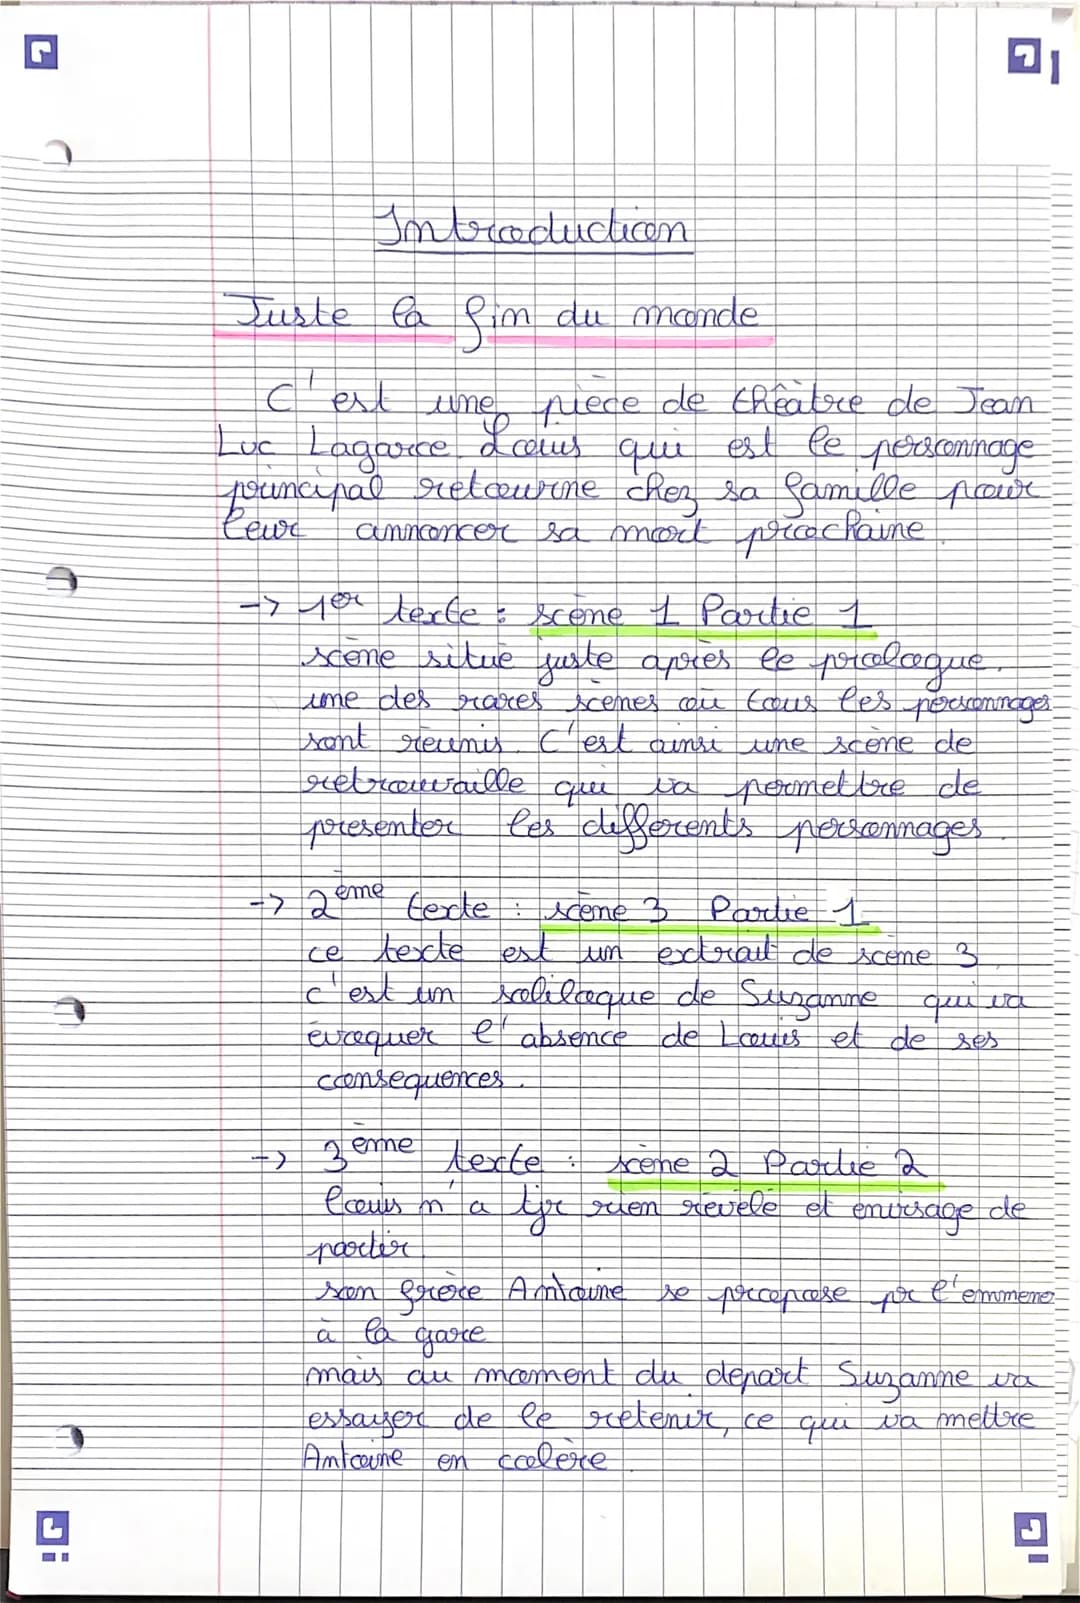 Introduction
Juste la fin du monde
C'est une pièce de théâtre de Jean
Luc Lagarce. Louis qui est le personnage
principal retourne chez sa famille pour
leur annoncer sa mort prochaine.
-> 1er texte : scène 1 Partie 1
scène situé juste après le prologue.
une des rares scènes où tous les personnages
sont réunis. C'est ainsi une scène de
retrouvaille qui va permettre de
presenter les differents personnages.
-> 2ème texte : scène 3 Partie 1
ce texte est un extrait de scene 3
c'est un soliloque de Suzanne qui va
évoquer l'absence de Louis et de ses
consequences.
-> 3ème texte : scène 2 Partie 2
Louis n'a tjr rien révélé et envisage de
partir.
son frère Antoine se propose pr l'emmene
à la gare
mais au moment du départ Suzanne va
essayer de le retenir, ce qui va mettre
Antoine en colère.